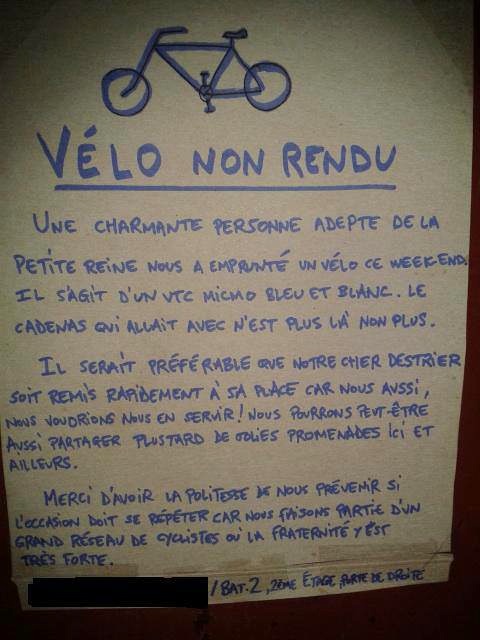 VÉLO NON RENDU
UNE CHARMANTE PERSONNE ADEPTE DE LA
PETITE REINE NOUS A EMPRUNTÉ UN VÉLO CE WEEK-END.
IL S'AGIT D'UN VTC MICMO BLEU ET BLANC. LE
CADENAS QUI ALLAIT AVEC N'EST PLUS LÀ NON PLUS.
IL SERAIT PRÉFÉRABLE QUE NOTRE CHER DESTRIER
SOIT REMIS RAPIDEMENT À SA PLACE CAR NOUS AUSSI,
NOUS VOUDRIONS NOUS EN SERVIR! NOUS POURRONS PEUT-ÊTRE
AUSSI PARTAGER PLUSTARD DE JOLIES PROMENADES ICI ET
AILLEURS.
MERCI D'AVOIR LA POLITESSE DE NOUS PRÉVENIR SI
L'OCCASION DOIT SE RÉPÉTER CAR NOUS FAISONS PARTIE D'UN
GRAND RÉSEAU DE CYCLISTES OÙ LA FRATERNITÉ Y EST
TRÈS FORTE.
/BAT. 2, 2ÈME ÉTAGE, PORTE DE DROITE